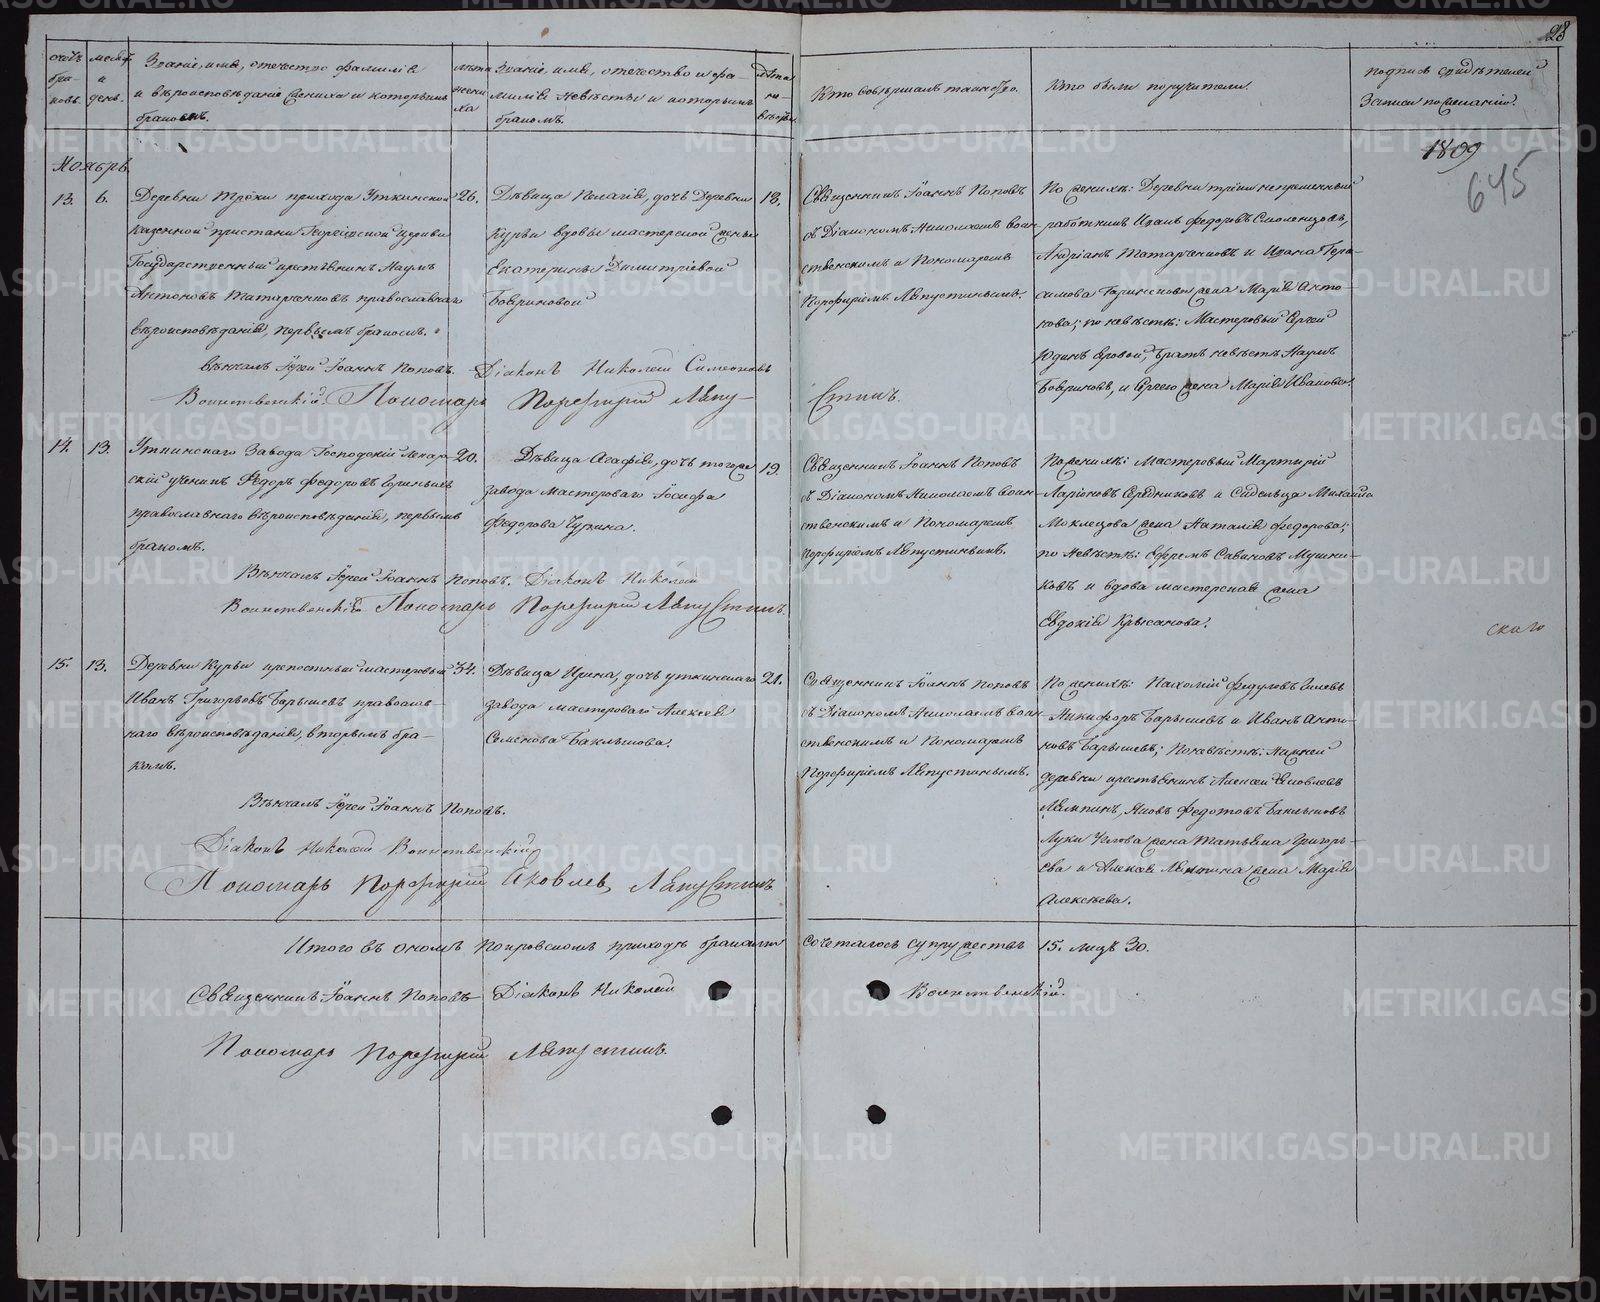 28
счетъ бра- ковъ.
месяцъ и день.
Званіе, имя, отечество фамилія
и вѣроисповѣданіе жениха и которымъ
бракомъ.
лѣта жени ха
Званіе, имя, отечество и фа-
милія невѣсты и которымъ
бракомъ.
лѣта не- вѣсты
Кто совершалъ таинство.
Кто были поручители.
подпись свидѣтелей
записи по желанію.
1809
645
Ноябрь.
13. 6.
Деревни Трёки прихода Уткинской
казенной пристани Георгіевской церкви
Государственный крестьянинъ Наумъ
Антоновъ Татарченковъ православнаго
вѣроисповѣданія, первымъ бракомъ.
26.
Дѣвица Пелагія, дочь деревни
Курьи вдовы мастерской жены
Екатерины Димитріевой
Бобриновой
18.
Священникъ Іоаннъ Поповъ
съ Діакономъ Николаемъ Воин-
ственскимъ и Пономаремъ
Порфиріемъ Ляпустинымъ.
По женихѣ: Деревни Трёки непременный
работникъ Иванъ Федоровъ Смоленцовъ,
Андріанъ Татарченковъ и Ивана Гера-
симова жена Марія Анто-
нова; по невѣстѣ: Мастеровый Сергей
Юдинъ братъ невѣсты Наумъ
Бобриновъ, и Сергея жена Марія Иванова.
Вѣнчалъ Іерей Іоаннъ Поповъ. Діаконъ Николай Симеоновъ
Воинственскій. Пономарь Порфирій Ляпу- стинъ.
14. 13.
Уткинскаго Завода Господскій лекар-
скій ученикъ Федоръ Федоровъ
православнаго вѣроисповѣданія, первымъ
бракомъ.
20.
Дѣвица Агафія, дочь тогоже
завода мастероваго Іосифа
Федорова Чуркина.
19.
Священникъ Іоаннъ Поповъ
съ Діакономъ Николаемъ Воин-
ственскимъ и Пономаремъ
Порфиріемъ Ляпустинымъ.
По женихѣ: Мастеровый Мартирій
Ларіоновъ Середниковъ и Сидельца Михаила
Моклецова жена Наталія Федорова;
по невѣстѣ: Ефремъ Савиновъ Мушни-
ковъ и вдова мастерская жена
Евдокія Крысанова.
Вѣнчалъ Іерей Іоаннъ Поповъ. Діаконъ Николай
Воинственскій Пономарь Порфирій Ляпустинъ.
скаго
15. 13.
Деревни Курьи крепостный мастеровый
Иванъ Григорьевъ Барышевъ православ-
наго вѣроисповѣданія, вторымъ бра-
комъ.
34.
Дѣвица Ирина, дочь уткинскаго
завода мастероваго Алексея
Семенова Баклыкова.
21.
Священникъ Іоаннъ Поповъ
съ Діакономъ Николаемъ Воин-
ственскимъ и Пономаремъ
Порфиріемъ Ляпустинымъ.
По женихѣ: Пахомій Федуловъ
Никифоръ Барышевъ и Иванъ Анто-
новъ Барышевъ; По невѣстѣ: Нижней
деревни крестьянинъ Алексей Яковлевъ
Лямпинъ, Яковъ Федотовъ
Луки жена Татьяна Григорь-
ева и Алексея Лямпина жена Марія
Алексѣева.
Вѣнчалъ Іерей Іоаннъ Поповъ.
Діаконъ Николай Воинственскій
Пономарь Порфирій Яковлевъ Ляпустинъ
Итого въ ономъ Покровскомъ приходѣ браками сочеталось супружествъ 15. лицъ 30.
Священникъ Іоаннъ Поповъ Діаконъ Николай Воинственскій.
Пономарь Порфирій Ляпустинъ.
METRIKI.GASO-URAL.RU